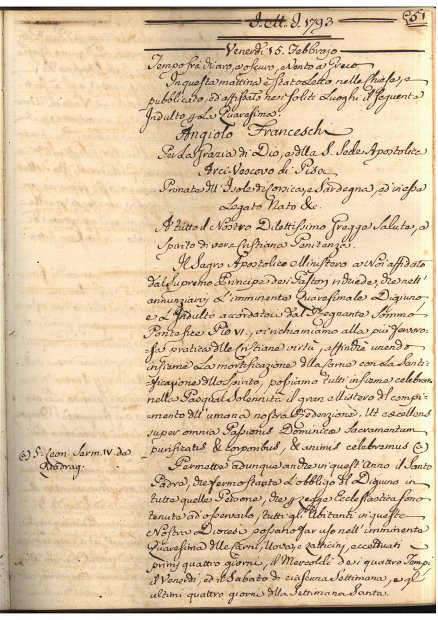 1793
Venerdi 15. Febbrajo
Tempo frà chiaro, e oscuro, e Vento a Greco
In questa mattina è stato Letto nelle Chiese, e
pubblicato, ed affissato nei soliti Luoghi il seguente
Indulto p La Quaresima:
Angiolo Franceschi
Per La Grazia di Dio, e della S. Sede Apostolica
Arci-Vescovo di Pisa
Primate dell' Isole di Corsica, e Sardegna, ed in esse
Legato Nato &c.
A tutto il Nostro Dilettissimo Gregge Salute, e
Spirito di vera Cristiana Penitenza.
Il Sagro Apostolico Ministero a Noi affidato
dal Supremo Principe dei Pastori richiede, che nell'
annunziarvj L'imminente Quaresimale Digiuno
e L'Indulto accordatoci dal Regnante Sommo
Pontefice Pio VI., vi richiamiamo alla più fervoro-
sa pratica delle Cristiane virtù, affinchè unendo
insieme La mortificazione della Carne con La Santi-
ficazione dello Spirito, possiamo tutti insieme celebrare
nella Pasqual Solennità il gran Mistero di compi-
mento dell'umana nostra Redenzione. Ut excellens
super omnia Passionis Dominicæ Sacramentum
purificatis & corporibus, & animis celebramus (a)
(a) S. Leon. Serm. IV. de
Quadrag.
Permette adunque anche in quest'Anno il Santo
Padre, che fermo stante L'obbligo del Digiuno in
tutte quelle Persone, che p Legge Ecclesiastica sono
tenute ad osservarlo, tutti gli Abitanti in questa
Nostra Diocesi possano far uso nell'imminente
Quaresima delle Carni, Uova, e Latticinj, eccettuati
i primj quattro giorni, il Mercoldi dei quattro Tempi
il Venerdi, ed il Sabato di ciascuna Settimana, e gli
ultimi quattro giorni della Settimana Santa.